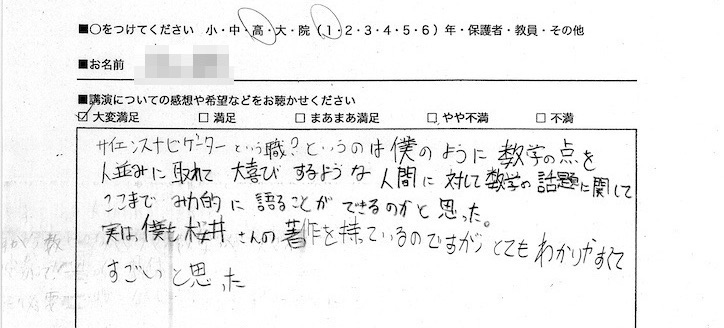 ■○をつけてください 小・中・高・大・院（1・2・3・4・5・6）年・保護者・教員・その他
■お名前
■講演についての感想や希望などをお聴かせください
☑ 大変満足 □ 満足 □ まあまあ満足 □ やや不満 □ 不満
サイエンスナビゲーターという職?というのは僕のように数学の点を
人並みに取れて大喜びするような人間に対して数学の話題に関して
ここまでみ力的に語ることができるのかと思った。
実は僕も桜井さんの著作を持ているのですが、とてもわかりやすくて
すごいと思った